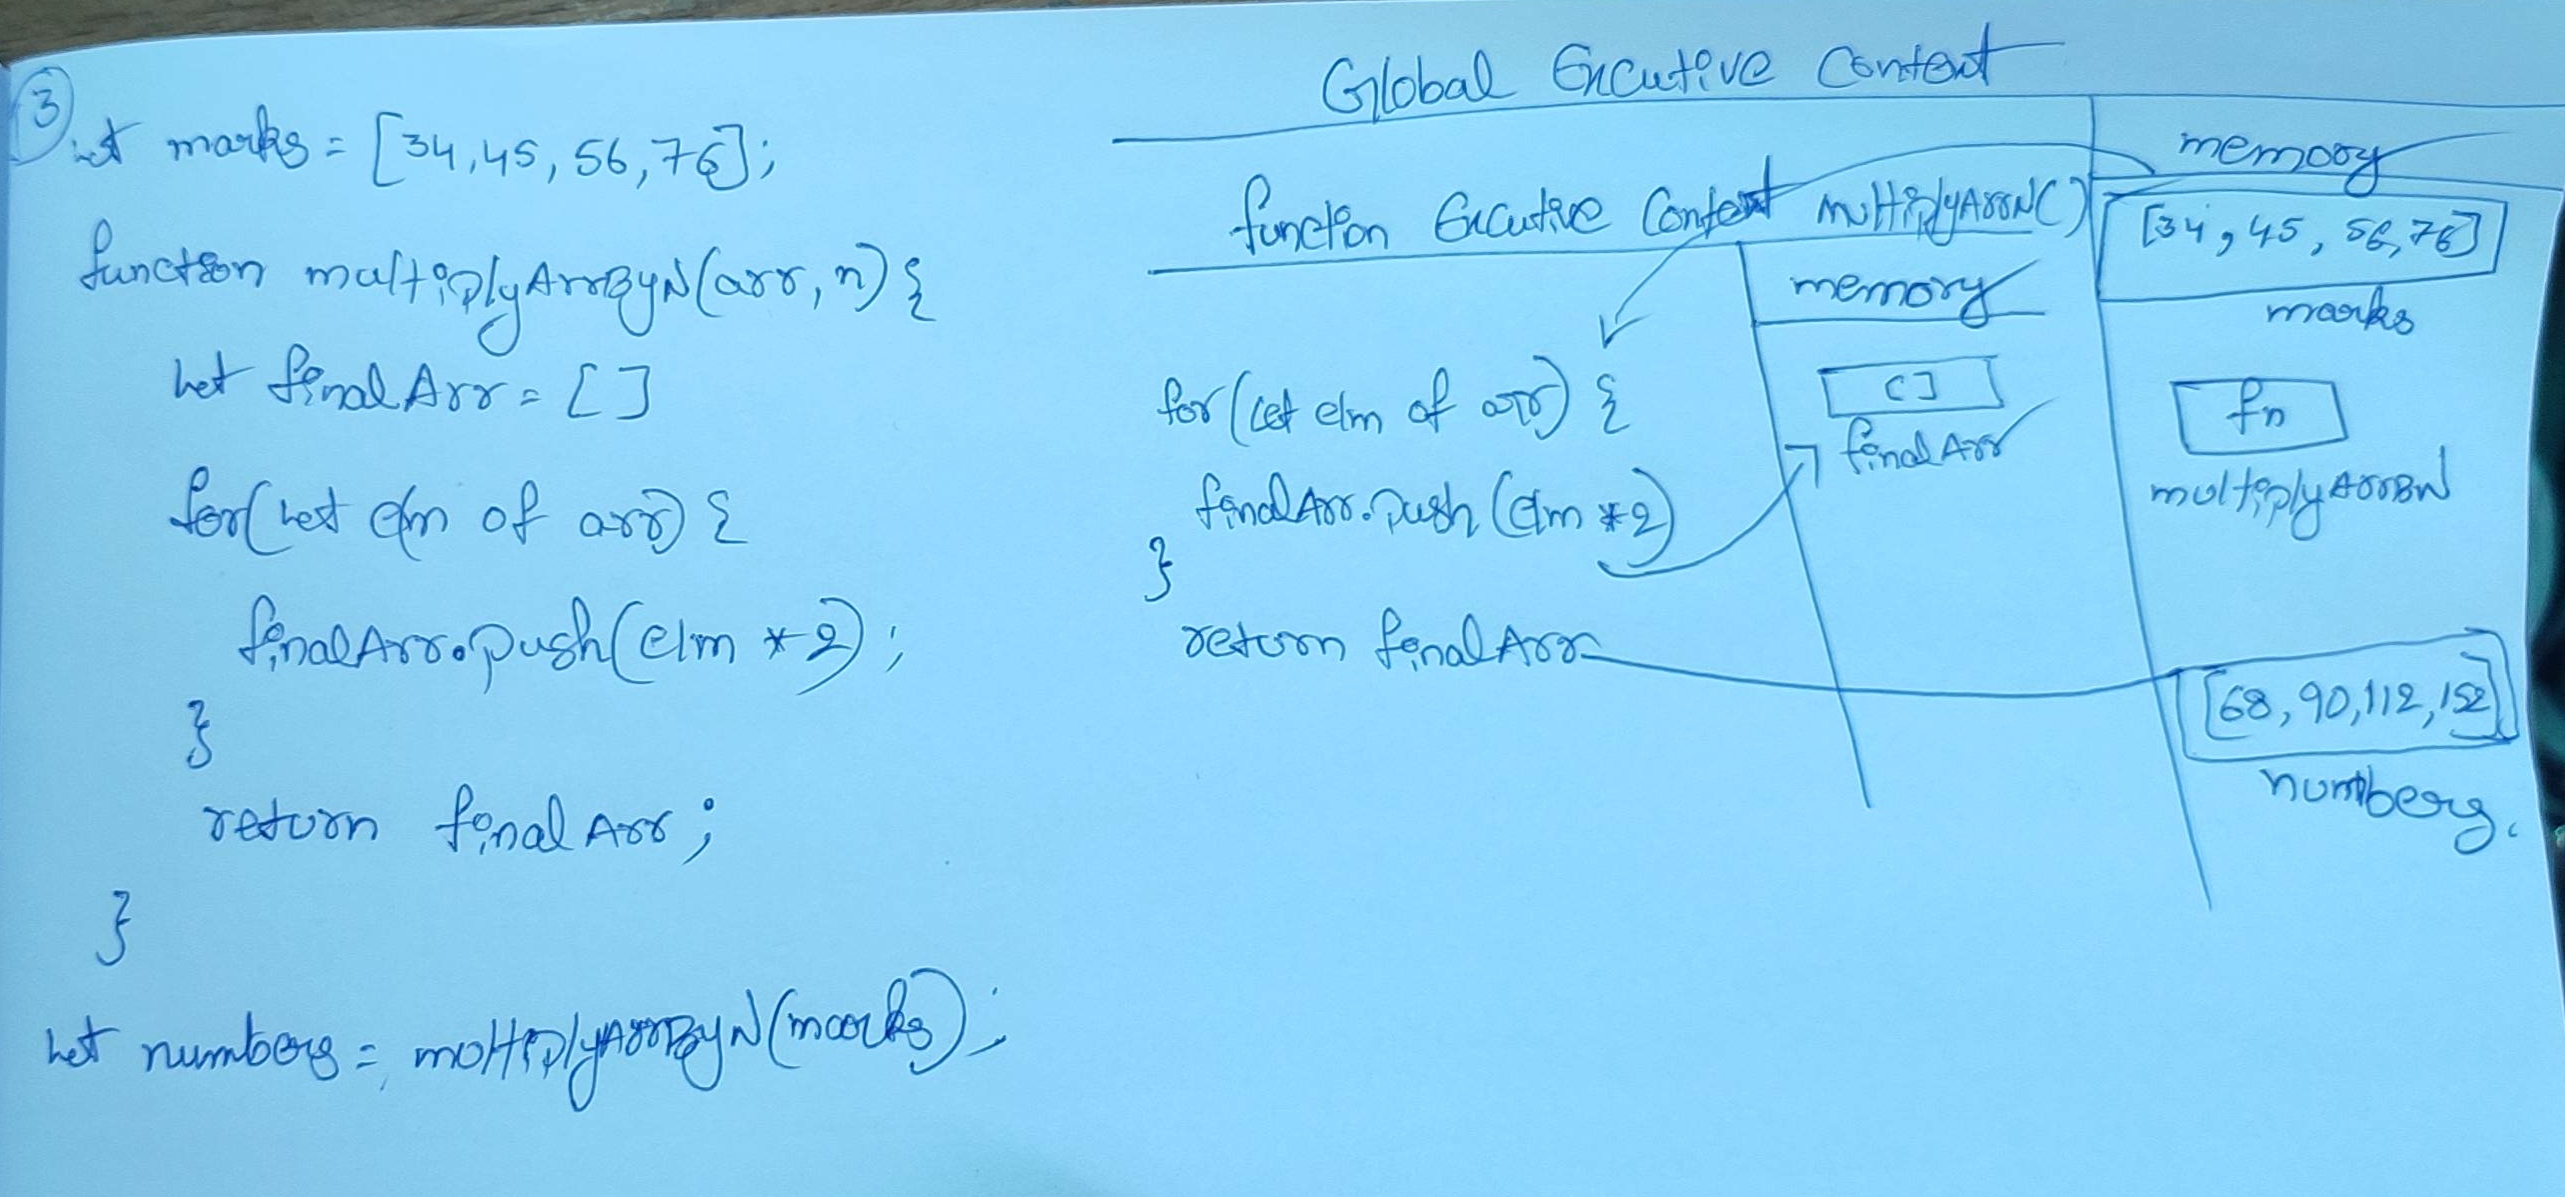 3
let marks = [34,45,56,76];
function multiplyArrByN(arr,n) {
let finalArr = []
for(let elm of arr) {
finalArr.push(elm *2);
}
return finalArr;
}
let numbers = multiplyArrByN(marks);
Global Excutive Context
memory
function Excutive Context multiplyArrN()
[34, 45, 56, 76]
marks
memory
for(let elm of arr) {
[]
finalArr
fn
multiplyArrBN
finalArr.push(elm *2)
}
return finalArr
[68, 90, 112, 152]
numbers.